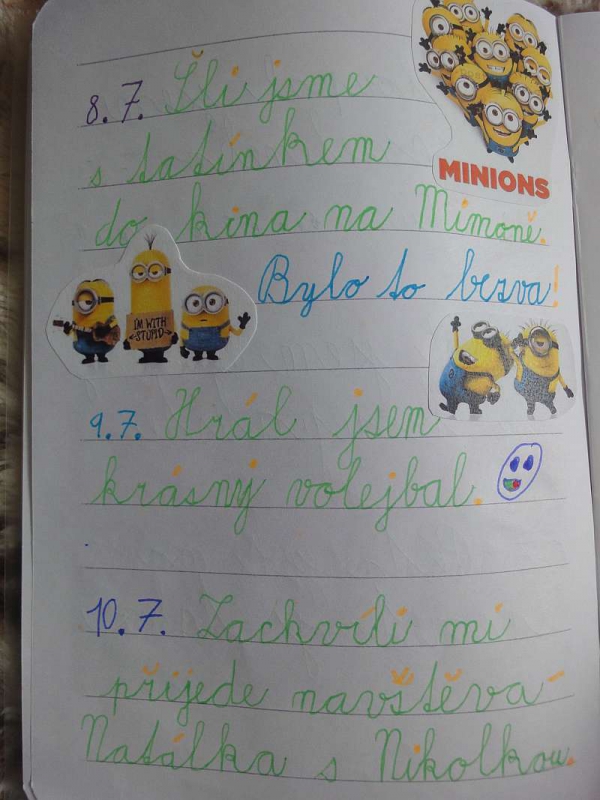 MINIONS
8. 7. Šli jsme
s tatínkem
do kina na Mimoně.
Bylo to bezva!
I'M WITH
STUPID
9. 7. Hrál jsem
krásný volejbal.
10. 7. Zachvíli mi
přijede navštěva -
Natálka s Nikolkou.